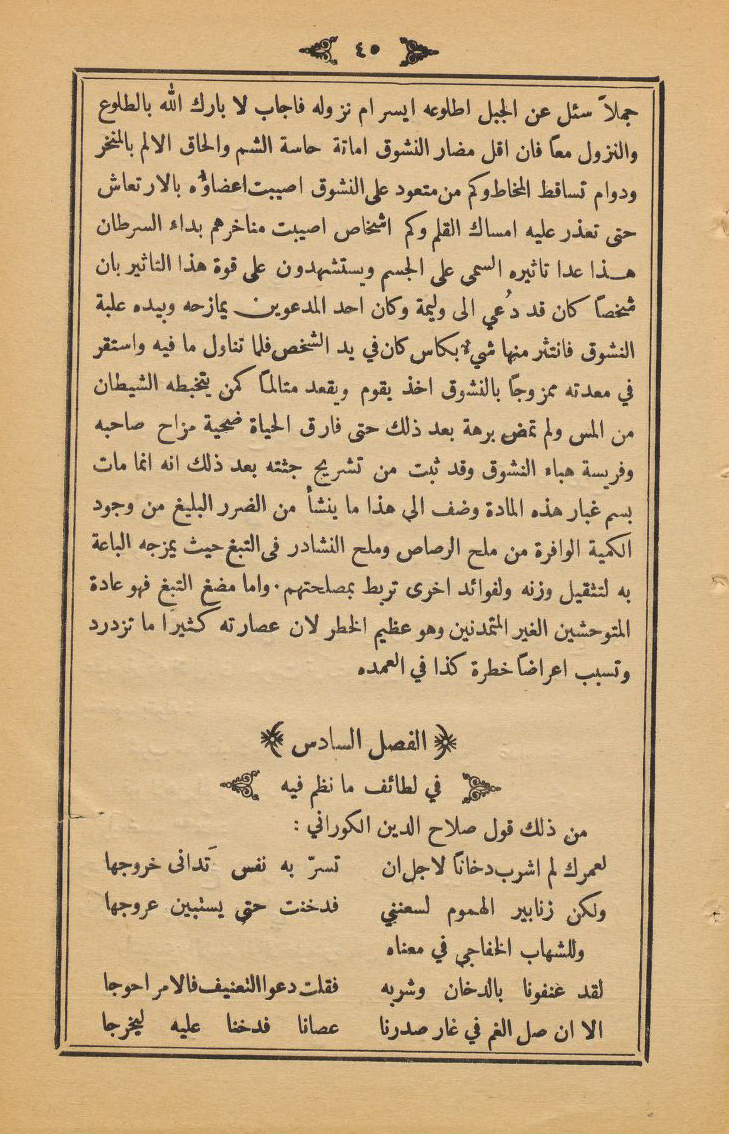 ٤٥
جملاً سئل عن الجبل اطلوعه ايسر ام نزوله فاجاب لا بارك الله بالطلوع
والنزول معاً فان اقل مضار النشوق اماتة حاسة الشم والحاق الالم بالمنخر
ودوام تساقط المخاط وكم من متعود على النشوق اصيبت اعضاؤه بالارتعاش
حتى تعذر عليه امساك القلم وكم اشخاص اصيبت مناخرهم بداء السرطان
هذا عدا تاثيره السمى على الجسم ويستشهدون على قوة هذا التاثير بان
شخصاً كان قد دُعي الى وليمة وكان احد المدعوين يمازحه وبيده علبة
النشوق فانتثر منها شيء بكاس كان في يد الشخص فلما تناول ما فيه واستقر
في معدته ممزوجاً بالنشوق اخذ يقوم ويقعد متالماً كمن يتخبطه الشيطان
من المس ولم تمض برهة بعد ذلك حتى فارق الحياة ضحية مزاح صاحبه
وفريسة هباء النشوق وقد ثبت من تشريح جثته بعد ذلك انه انما مات
بسم غبار هذه المادة وضف الى هذا ما ينشأ من الضرر البليغ من وجود
الكمية الوافرة من ملح الرصاص وملح النشادر في التبغ حيث يمزجه الباعة
به لتثقيل وزنه ولفوائد اخرى تربط بمصلحتهم . واما مضغ التبغ فهو عادة
المتوحشين الغير المتمدنين وهو عظيم الخطر لان عصارته كثيرا ما تزدرد
وتسبب اعراضاً خطرة كذا في العمده
﴿ الفصل السادس ﴾
في لطائف ما نظم فيه
من ذلك قول صلاح الدين الكوراني :
لعمرك لم اشرب دخاناً لاجل ان تسرّ به نفس تَدانى خروجها
ولكن زنابير الهموم لسعنني فدخنت حتى يستبين عروجها
وللشهاب الخفاجي في معناه
لقد عنفونا بالدخان وشربه فقلت دعوا التعنيف فالامر احوجا
الا ان صل الغم في غار صدرنا عصانا فدخنا عليه ليخرجا